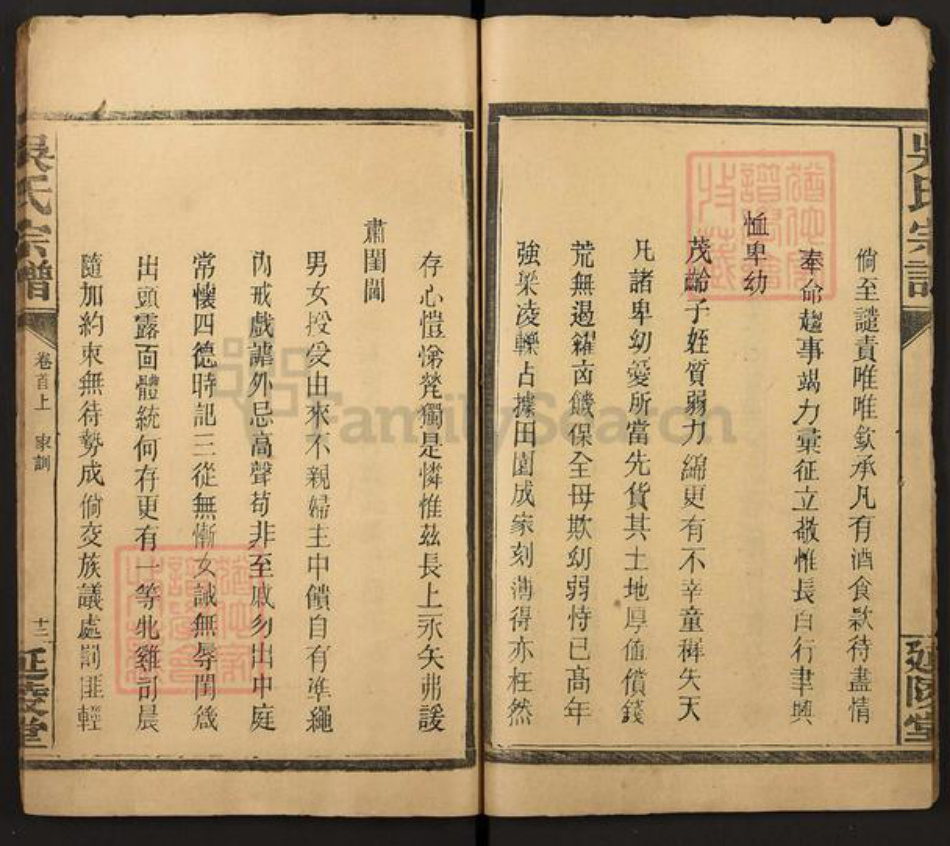 吳氏宗譜
延陵堂
倘至譴責唯唯欽承凡有酒食款待盡情
奉命趨事竭力彙征立敬惟長百行聿興
恤卑幼
茂齡子姪質弱力綿更有不幸童穉失天
凡諸卑幼憂所當先貨其土地厚值償錢
荒無遏糴卤饑保全毋欺幼弱恃己高年
強梁凌轢占據田園成家刻薄得亦枉然
存心愷悌煢獨是憐惟茲長上永矢弗諼
肅閨閫
男女授受由來不親婦主中饋自有準繩
內戒戲謔外忌高聲苟非至戚勿出中庭
常懷四德時記三從無慚女誡無辱閨箴
出頭露面體統何存更有一等牝雞司晨
隨加約束無待勢成倘交族議處罰匪輕
吳氏宗譜
卷首上 家訓
十二
延陵堂
FamilySearch